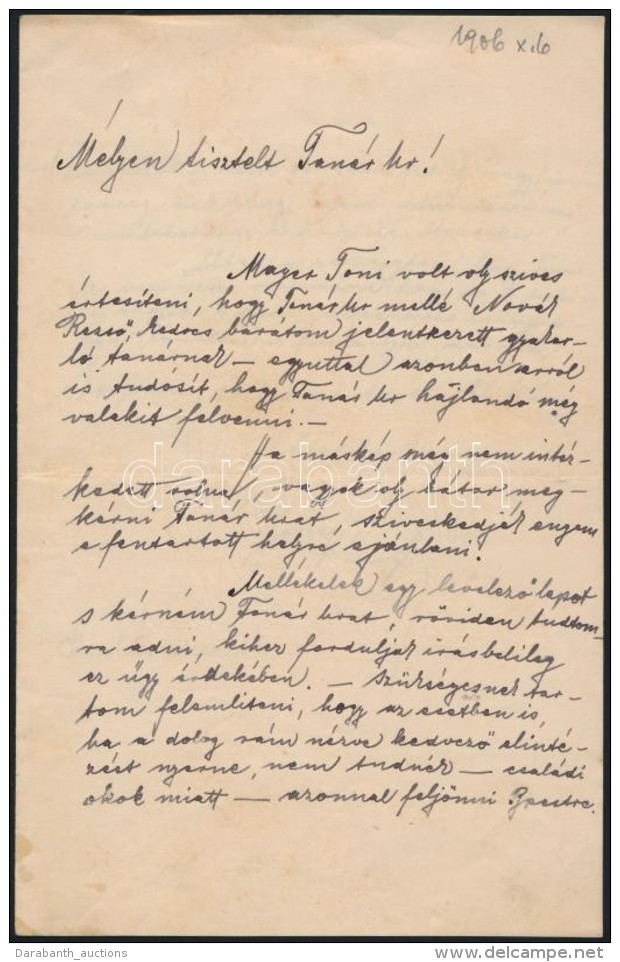 1906 X.6
Mélyen tisztelt Tanár Ur!
Mayer Toni volt oly szives
értesíteni, hogy Tanár Ur mellé Novák
Rezső, kedves barátom jelentkezett gyakor-
ló tanárnak — egyuttal azonban arról
is tudósít, hogy Tanár Ur hajlandó még
valakit felvenni. —
Ha máskép még nem intéz-
kedett volna, vagyok oly bátor meg-
kérni Tanár Urat, sziveskedjék engem
a fentartott helyre ajánlani.
Mellékelek egy levelező lapot
s kérném Tanár Urat, röviden tudtom-
ra adni, kihez forduljak írásbelileg
ez ügy érdekében. — Szükségesnek tar-
tom felemlíteni, hogy az esetben is,
ha a dolog rám nézve kedvező elinté-
zést nyerne, nem tudnék — családi
okok miatt — azonnal feljönni Bpestre.
darabanth
Darabanth_auctions
www.delcampe.net